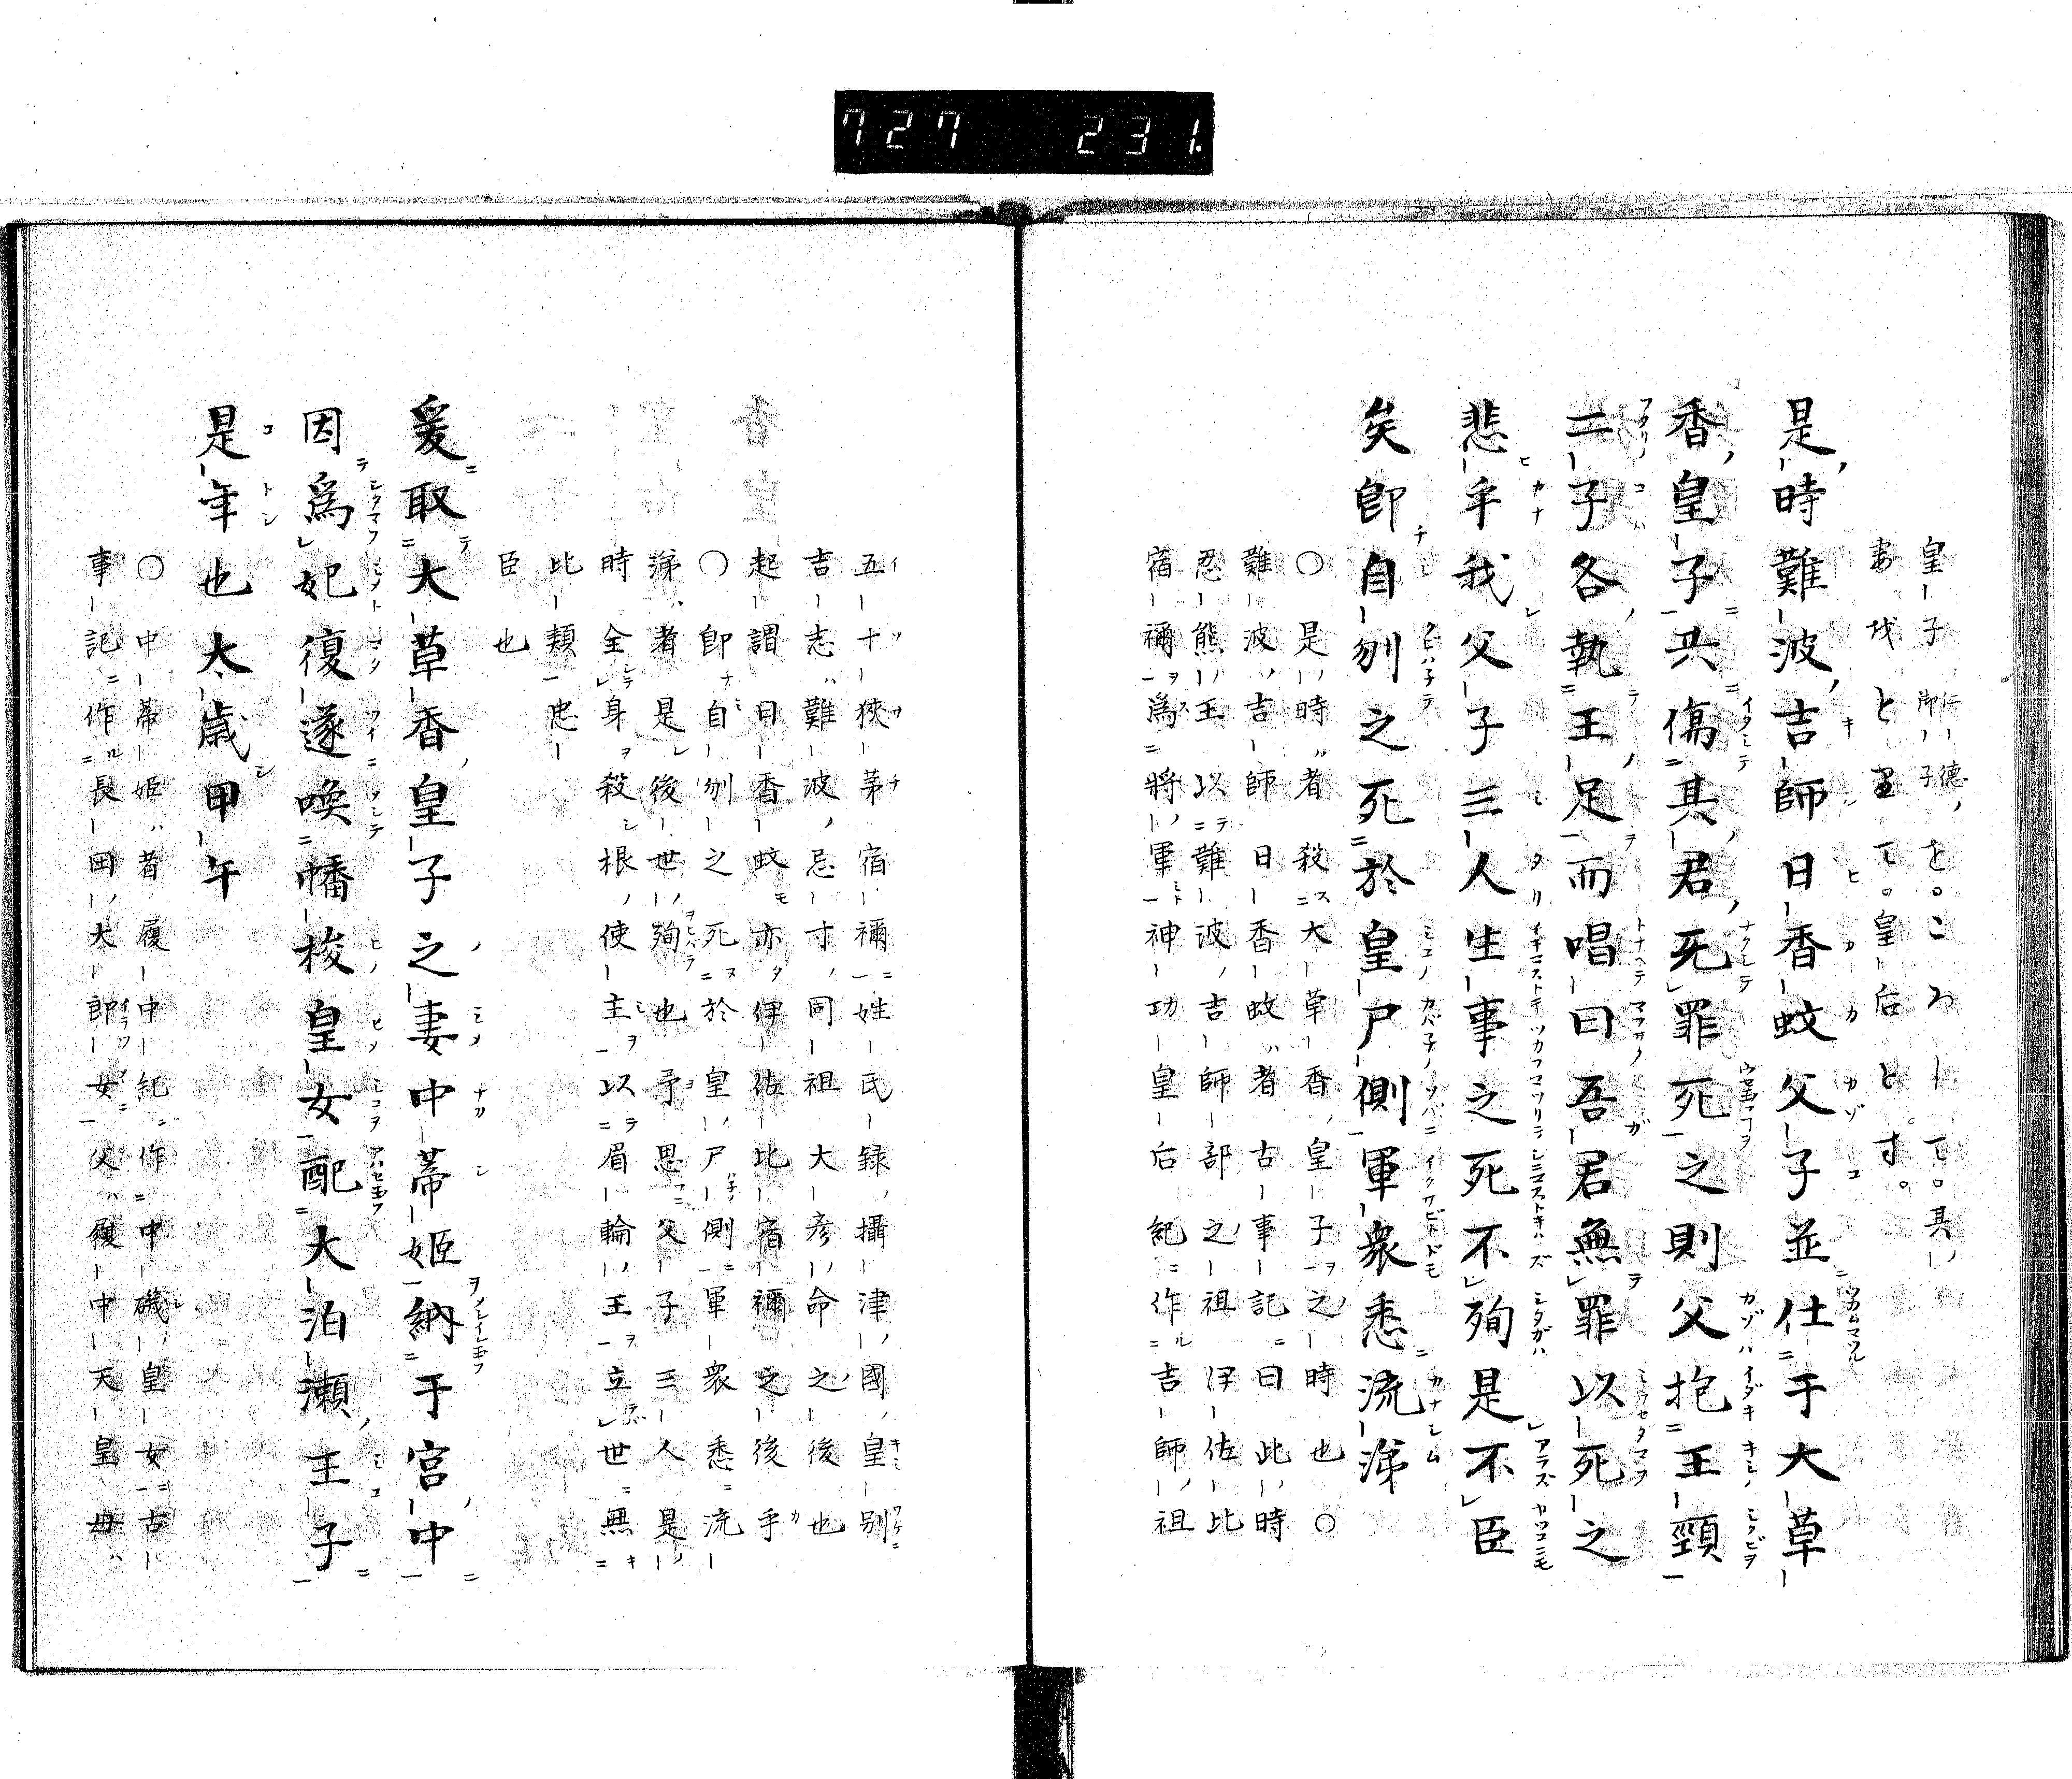 727 231
皇子仁德御子をころして其
妻哉とりて皇后とす
是時難波吉師日香蚊父子並仕于大草
香皇子共傷其君死罪死之則父抱王頸
二子各執王足而唱曰吾君無罪以死之
悲乎我父子三人生事之死不殉是不臣
矣卽自刎之死於皇尸側軍衆悉流涕
〇是時者殺大草香皇子之時也〇
難波吉師日香蚊者古事記曰此時
忍熊王以難波吉師部之祖伊佐比
宿禰爲將軍神功皇后紀作吉師祖
五十狹茅宿禰姓氏録攝津國皇別
吉志難波忌寸同祖大彦命之後也
起謂日香蚊亦伊佐比宿禰之後乎
〇卽自刎之死於皇尸側軍衆悉流
涕者是後世殉也予思父子三人是
時全身殺根使主以眉輪王立世無
比類忠
臣也
爰取大草香皇子之妻中蒂姬納于宮中
因爲妃復遂喚幡梭皇女配大泊瀬王子
是年也太歳甲午
〇中蒂姫者履中紀作中磯皇女古
事記作長田大郎女父履中天皇母